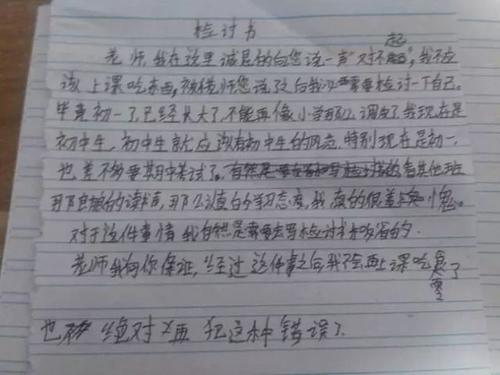 检讨书
老师,我在这里诚恳的向您说一声"对不起",我不应
该上课吃东西,被您说了之后我必需要检讨一下自己。
毕竟初一了,已经长大了,不能再像小学那么调皮了,我现在是
初中生,初中生就应该有初中生的风范,特别现在是初一,
也差不多要期中考试了。看其他班
那么的读书声,那么认真的学习态度,我真的很羞愧。
对于这件事情我自然是需要去写检讨书的。
老师我向你保证,经过这件事之后,我不会再上课吃零食了
也绝对不再犯这种错误了。